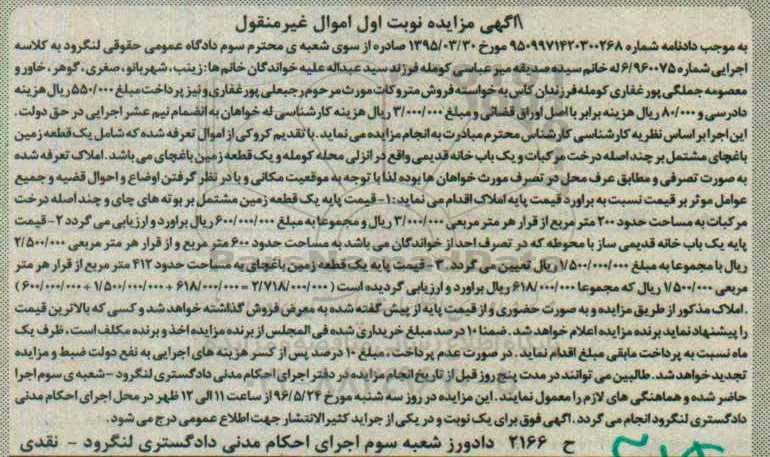 \آگهی مزایده نوبت اول اموال غیرمنقول
به موجب دادنامه شماره ۹۵۰۹۹۷۱۴۲۰۳۰۰۲۶۸ مورخ ۱۳۹۵/۰۳/۳۰ صادره از سوی شعبه ی محترم سوم دادگاه عمومی حقوقی لنگرود به کلاسه
اجرایی شماره ۶/۹۶۰۰۷۵ له خانم سیده صدیقه میر عباسی کومله فرزند سید عبداله علیه خواندگان خانم ها: زینب، شهربانو، صغری، گوهر، خاور و
معصومه جملگی پور غفاری کومله فرزندان کاس به خواسته فروش متروکات مورث مرحوم رجبعلی پور غفاری و نیز پرداخت مبلغ ۵۵۰/۰۰۰ ریال هزینه
دادرسی و ۸۰/۰۰۰ ریال هزینه برابر با اصل اوراق قضائی و مبلغ ۳/۰۰۰/۰۰۰ ریال هزینه کارشناسی له خواهان به انضمام نیم عشر اجرایی در حق دولت.
این اجرا بر اساس نظریه کارشناسی کارشناس محترم مبادرت به انجام مزایده می نماید. با تقدیم کروکی از اموال تعرفه شده که شامل یک قطعه زمین
باغچای مشتمل بر چند اصله درخت مرکبات و یک باب خانه قدیمی واقع در انزلی محله کومله و یک قطعه زمین باغچای می باشد. املاک تعرفه شده
به صورت تصرفی و مطابق عرف محل در تصرف مورث خواهان ها بوده لذا با توجه به موقعیت مکانی و با در نظر گرفتن اوضاع و احوال قضیه و جمیع
عوامل موثر بر قیمت نسبت به براورد قیمت پایه املاک اقدام می نماید: ۱- قیمت پایه یک قطعه زمین مشتمل بر بوته های چای و چند اصله درخت
مرکبات به مساحت حدود ۲۰۰ متر مربع از قرار هر متر مربعی ۳/۰۰۰/۰۰۰ ریال و مجموعا به مبلغ ۶۰۰/۰۰۰/۰۰۰ ریال براورد و ارزیابی می گردد ۲- قیمت
پایه یک باب خانه قدیمی ساز با محوطه که در تصرف احد از خواندگان می باشد به مساحت حدود ۶۰۰ متر مربع و از قرار هر متر مربعی ۲/۵۰۰/۰۰۰
ریال با مجموعا به مبلغ ۱/۵۰۰/۰۰۰/۰۰۰ ریال تعیین می گردد. ۳- قیمت پایه یک قطعه زمین باغچای به مساحت حدود ۴۱۲ متر مربع از قرار هر متر
مربعی ۱/۵۰۰/۰۰۰ ریال که مجموعا ۶۱۸/۰۰۰/۰۰۰ ریال براورد و ارزیابی گردیده است (۲/۷۱۸/۰۰۰/۰۰۰ = ۶۱۸/۰۰۰/۰۰۰ + ۱/۵۰۰/۰۰۰/۰۰۰ + ۶۰۰/۰۰۰/۰۰۰)
.املاک مذکور از طریق مزایده و به صورت حضوری و از قیمت پایه از پیش گفته شده به معرض فروش گذاشته خواهد شد و کسی که بالاترین قیمت
را پیشنهاد نماید برنده مزایده اعلام خواهد شد. ضمنا ۱۰ درصد مبلغ خریداری شده فی المجلس از برنده مزایده اخذ و برنده مکلف است، ظرف یک
ماه نسبت به پرداخت مابقی مبلغ اقدام نماید. در صورت عدم پرداخت، مبلغ ۱۰ درصد پس از کسر هزینه های اجرایی به نفع دولت ضبط و مزایده
تجدید خواهد شد. طالبین می توانند در مدت پنج روز قبل از تاریخ انجام مزایده در دفتر اجرای احکام مدنی دادگستری لنگرود -شعبه ی سوم اجرا
حاضر شده و هماهنگی های لازم را معمول نمایند. این مزایده در روز سه شنبه مورخ ۹۶/۵/۲۴ از ساعت ۱۱ الی ۱۲ ظهر در محل اجرای احکام مدنی
دادگستری لنگرود انجام می گردد. آگهی فوق برای یک نوبت و در یکی از جراید کثیرالانتشار جهت اطلاع عمومی درج می شود.
ح ۲۱۶۶ دادورز شعبه سوم اجرای احکام مدنی دادگستری لنگرود - نقدی